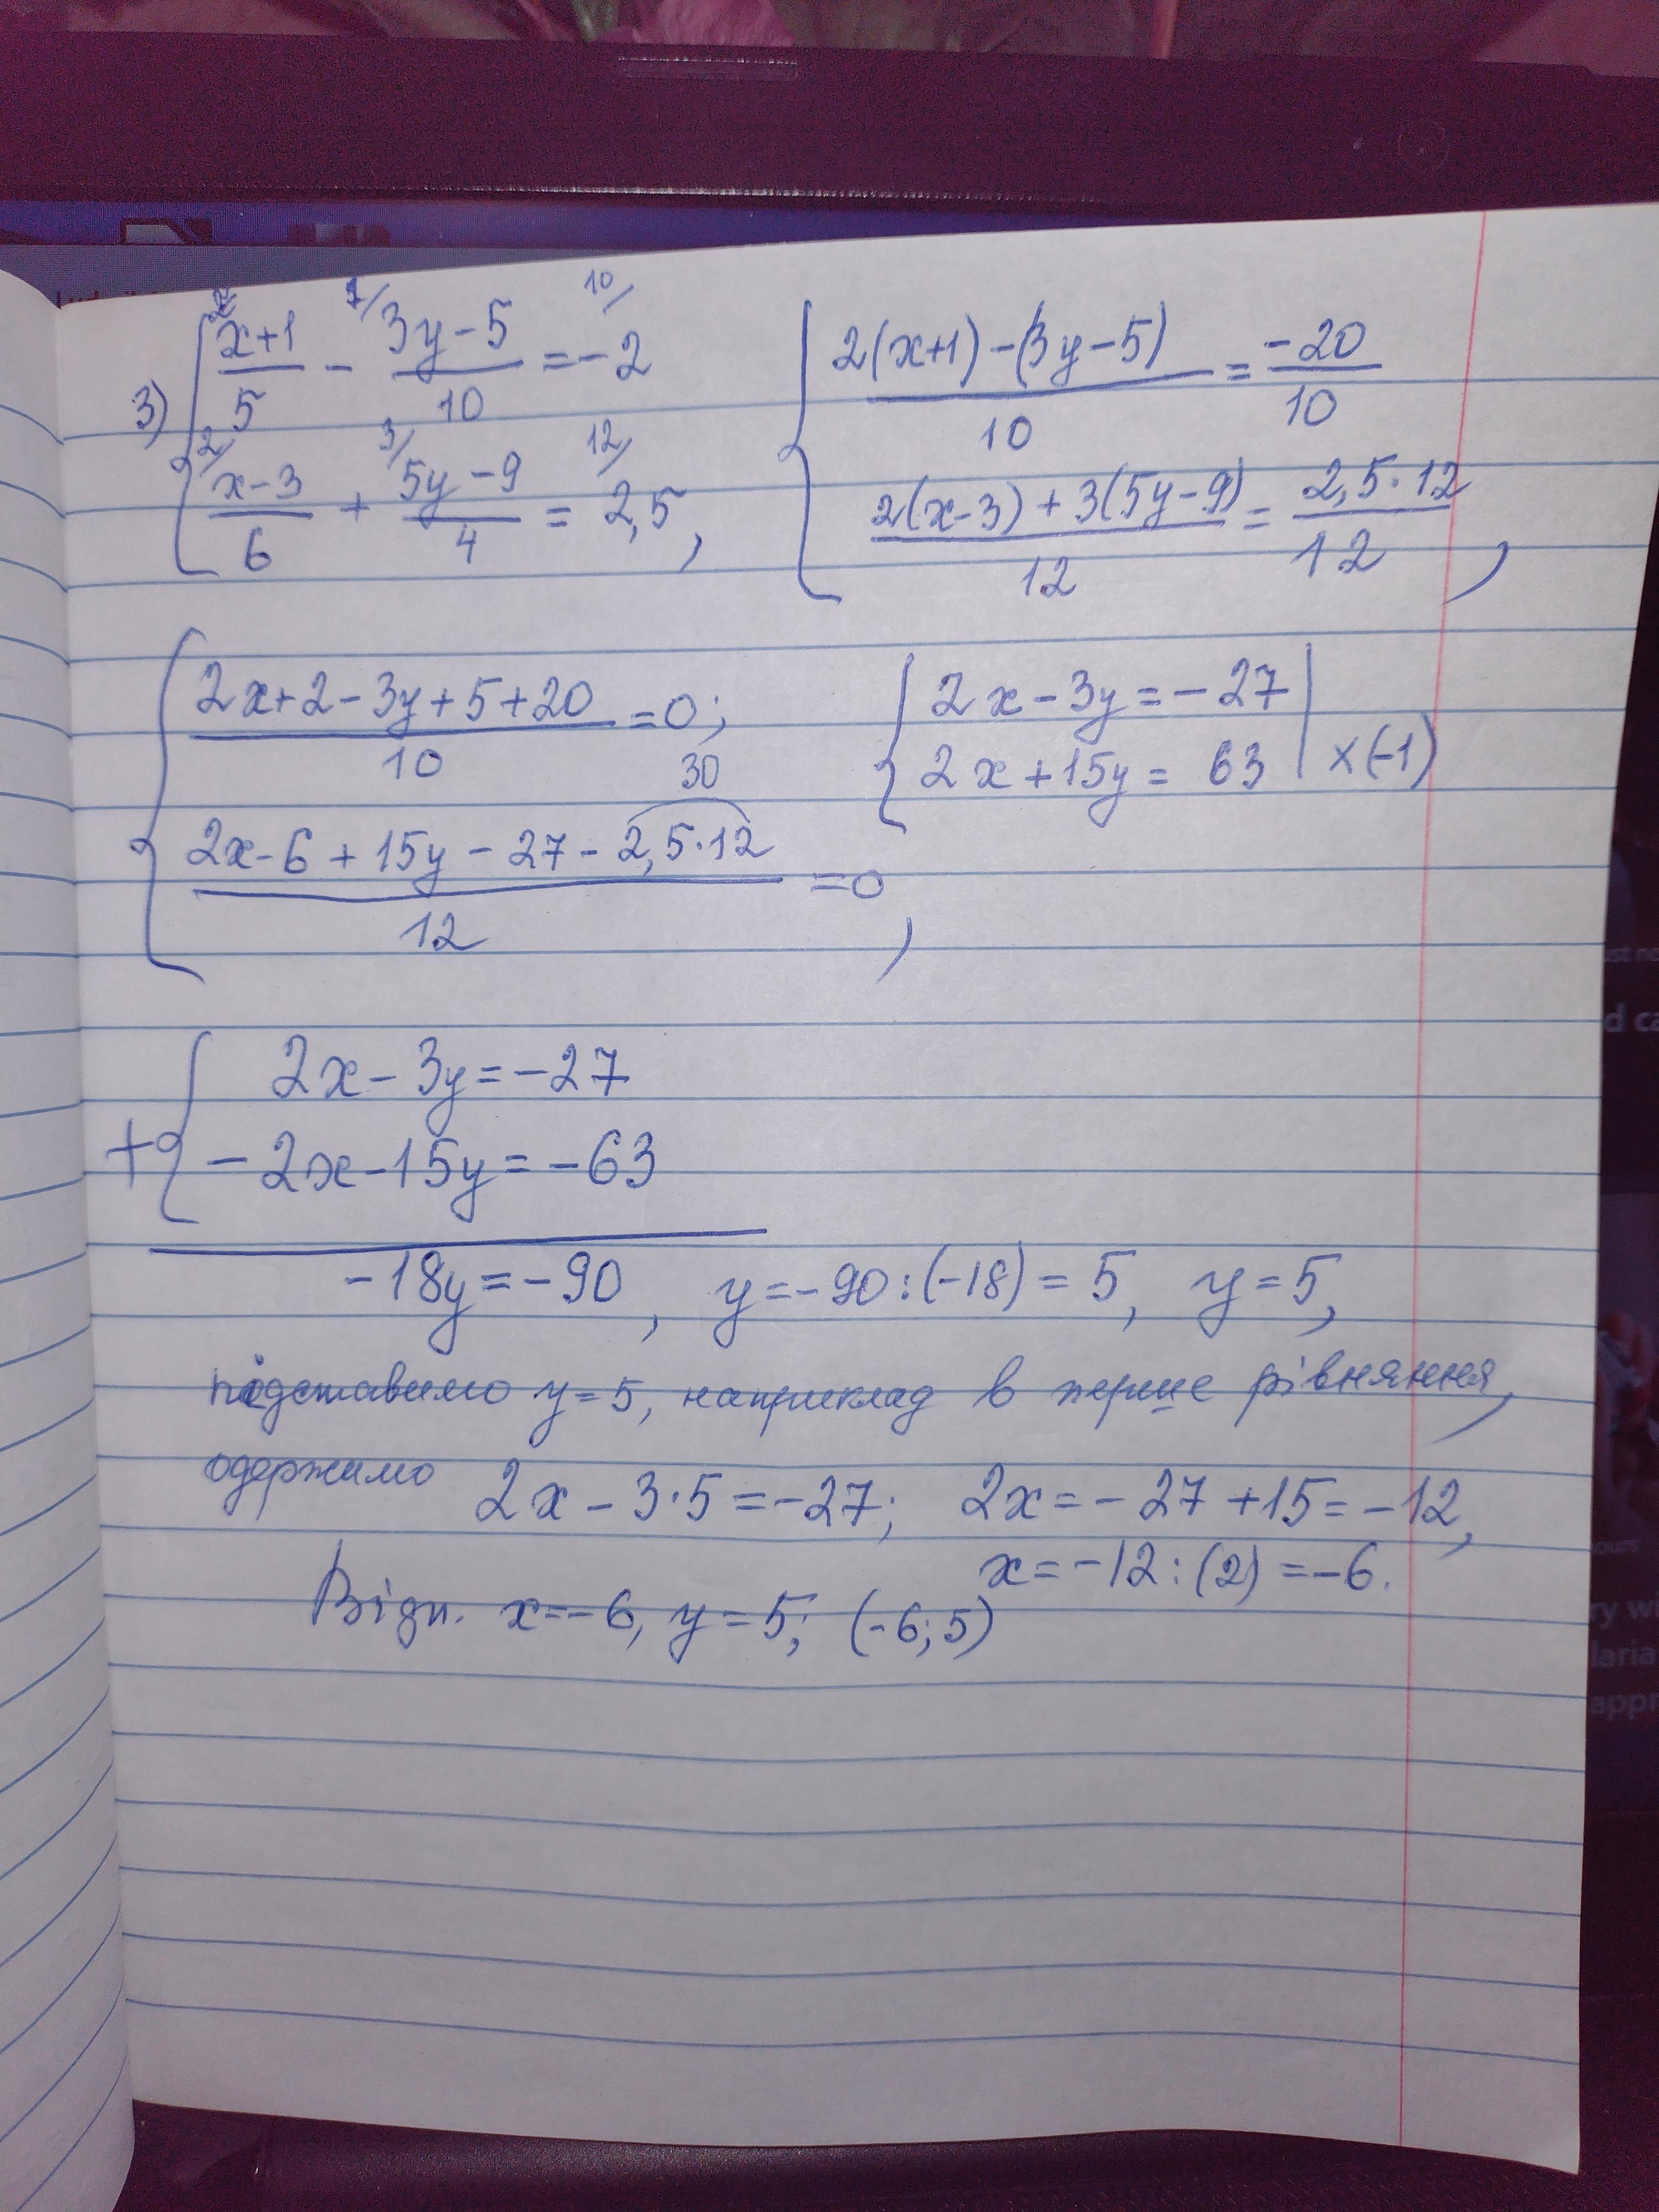 3) { x+1/5 - 3y-5/10 = -2   2/ 1/ 10/
{ x-3/6 + 5y-9/4 = 2,5,   2/ 3/ 12/
{ 2(x+1)-(3y-5)/10 = -20/10
{ 2(x-3)+3(5y-9)/12 = 2,5·12/12,
{ 2x+2-3y+5+20/10 =0;
{ 2x-6+15y-27-2,5·12/12 =0,   30
{ 2x-3y=-27
{ 2x+15y= 63 | ×(-1)
+{ 2x-3y=-27
-2x-15y=-63
-18y=-90, y=-90:(-18)=5, y=5,
підставимо y=5, наприклад в перше рівняння,
одержимо 2x-3·5=-27; 2x=-27+15=-12,
x=-12:(2)=-6.
Відп. x=-6, y=5; (-6;5)